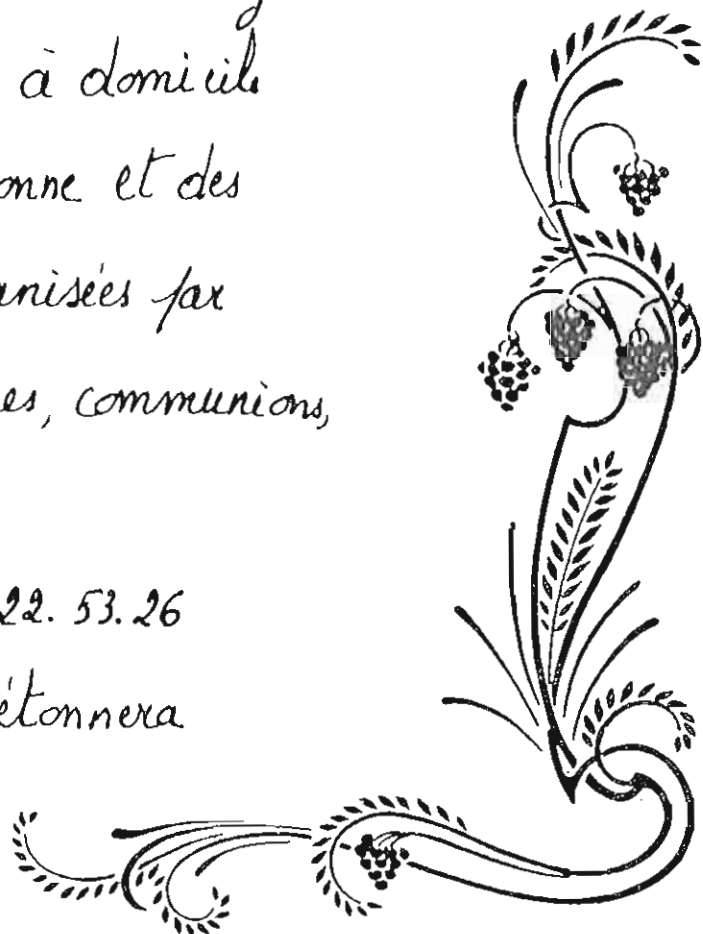 à domicile
onne et des
anisées par
es, communions,
22. 53. 26
étonnera